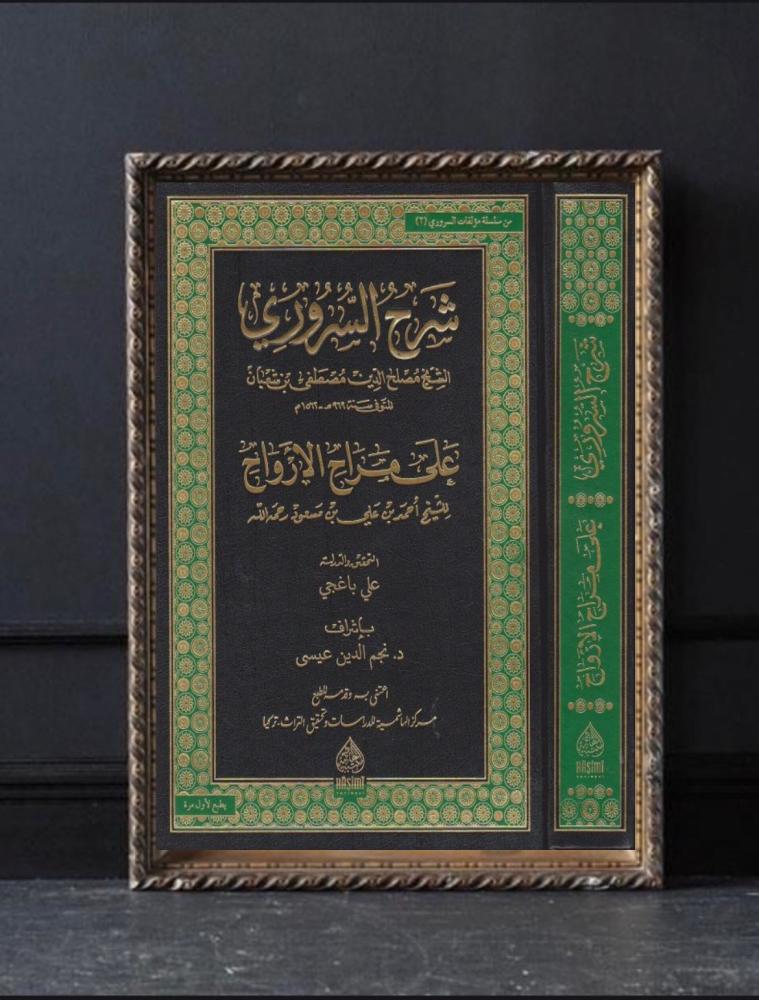 من سلسلة مؤلفات السروري (٢)
شَرْحُ السُّرُورِي
الشيخ مصلح الدين مصطفى بن شعبان
المتوفى سنة ٩٦٩هـ - ١٥٦٢م
عَلَى مَرَاحِ الأَرْوَاحِ
للشيخ أحمد بن علي بن مسعود رحمه الله
التحقيق والدراسة
علي باغجي
بإشراف
د. نجم الدين عيسى
اعتنى به وقدمه للطبع
مركز الهاشمية للدراسات وتحقيق التراث - تركيا
HÂŞİMİ
YAYINEVİ
يطبع لأول مرة
شرح السروري
على مراح الأرواح
HÂŞİMİ
YAYINEVİ